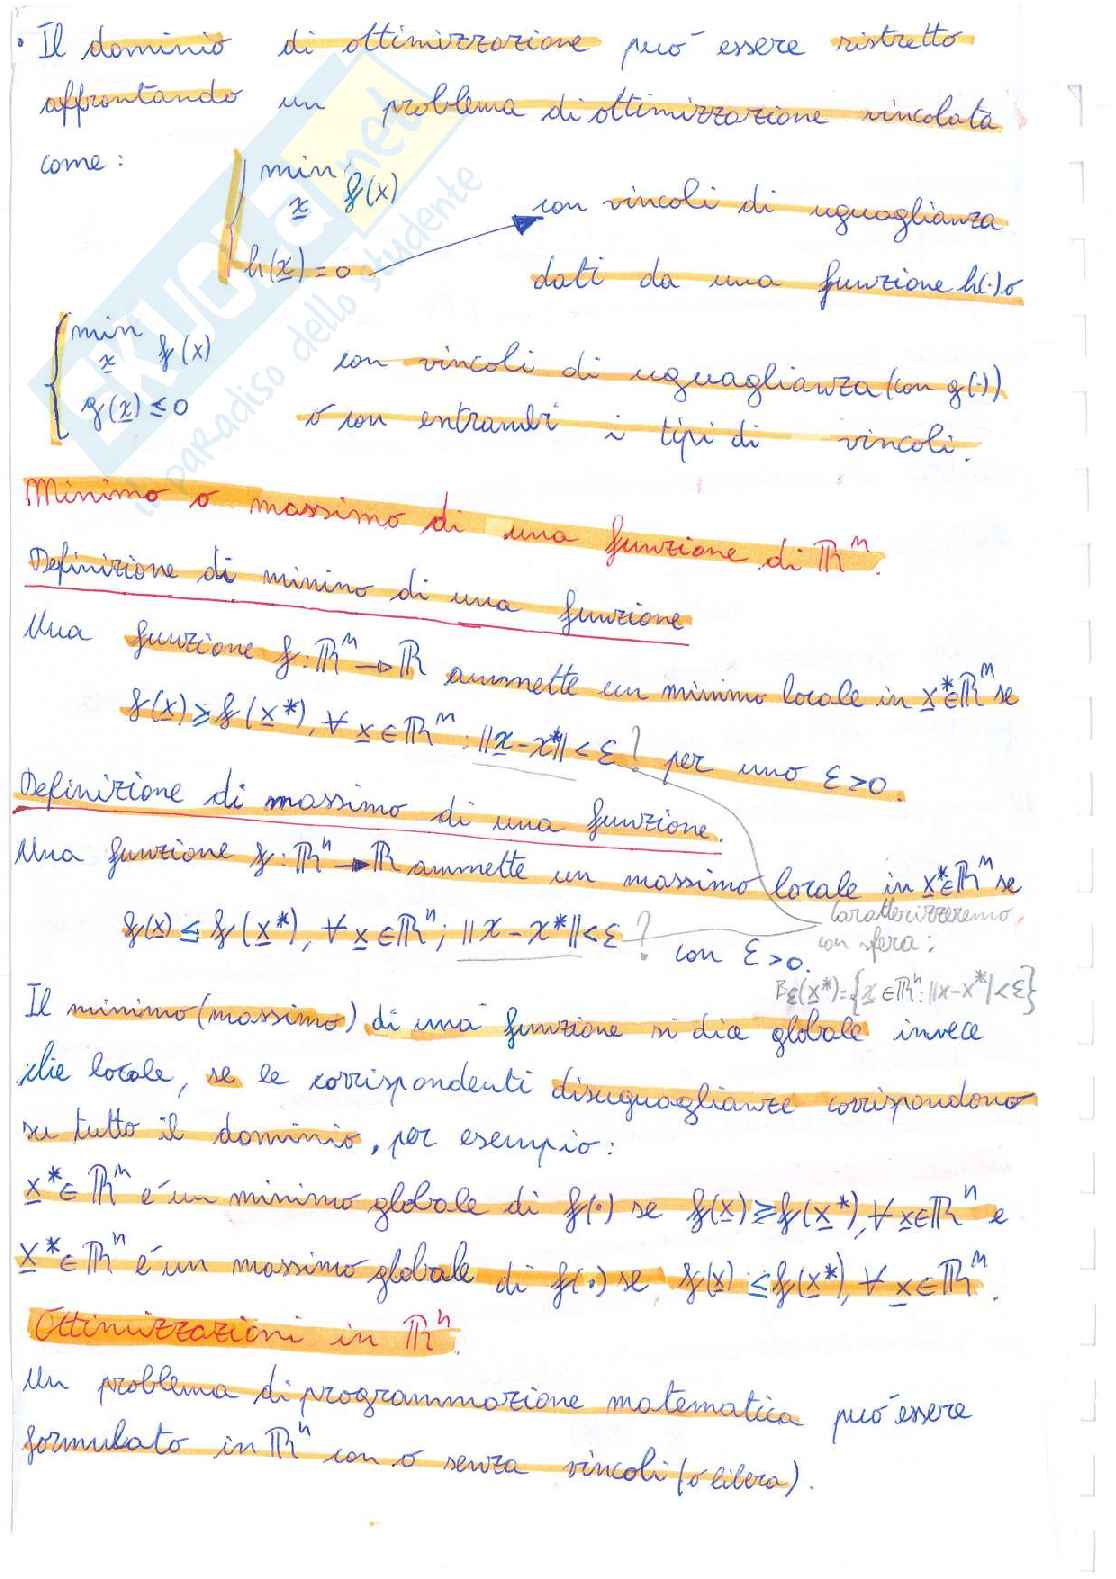 • Il dominio di ottimizzazione può essere ristretto
affrontando un problema di ottimizzazione vincolata
come:
min f(x)
x
h(x) = 0
con vincoli di uguaglianza
dati da una funzione h(·) o
min f(x)
x
g(x) ≤ 0
con vincoli di uguaglianza (con g(·))
o con entrambi i tipi di vincoli.
Minimo o massimo di una funzione di ℝⁿ.
Definizione di minimo di una funzione
Una funzione f: ℝⁿ → ℝ ammette un minimo locale in x* ∈ ℝⁿ se
f(x) ≥ f(x*), ∀ x ∈ ℝⁿ: ||x - x*|| < ε ? per uno ε > 0.
Definizione di massimo di una funzione.
Una funzione f: ℝⁿ → ℝ ammette un massimo locale in x* ∈ ℝⁿ se
f(x) ≤ f(x*), ∀ x ∈ ℝⁿ; ||x - x*|| < ε ? con ε > 0.
caratterizzeremo
con sfera:
Bε(x*) = {x ∈ ℝⁿ: ||x - x*| < ε}
Il minimo (massimo) di una funzione si dice globale invece
che locale, se le corrispondenti disuguaglianze corrispondono
su tutto il dominio, per esempio:
x* ∈ ℝⁿ è un minimo globale di f(·) se f(x) ≥ f(x*), ∀ x ∈ ℝⁿ e
x* ∈ ℝⁿ è un massimo globale di f(·) se f(x) ≤ f(x*), ∀ x ∈ ℝⁿ.
Ottimizzazioni in ℝⁿ.
Un problema di programmazione matematica può essere
formulato in ℝⁿ con o senza vincoli (o libera).
skuola.net
il paradiso dello studente